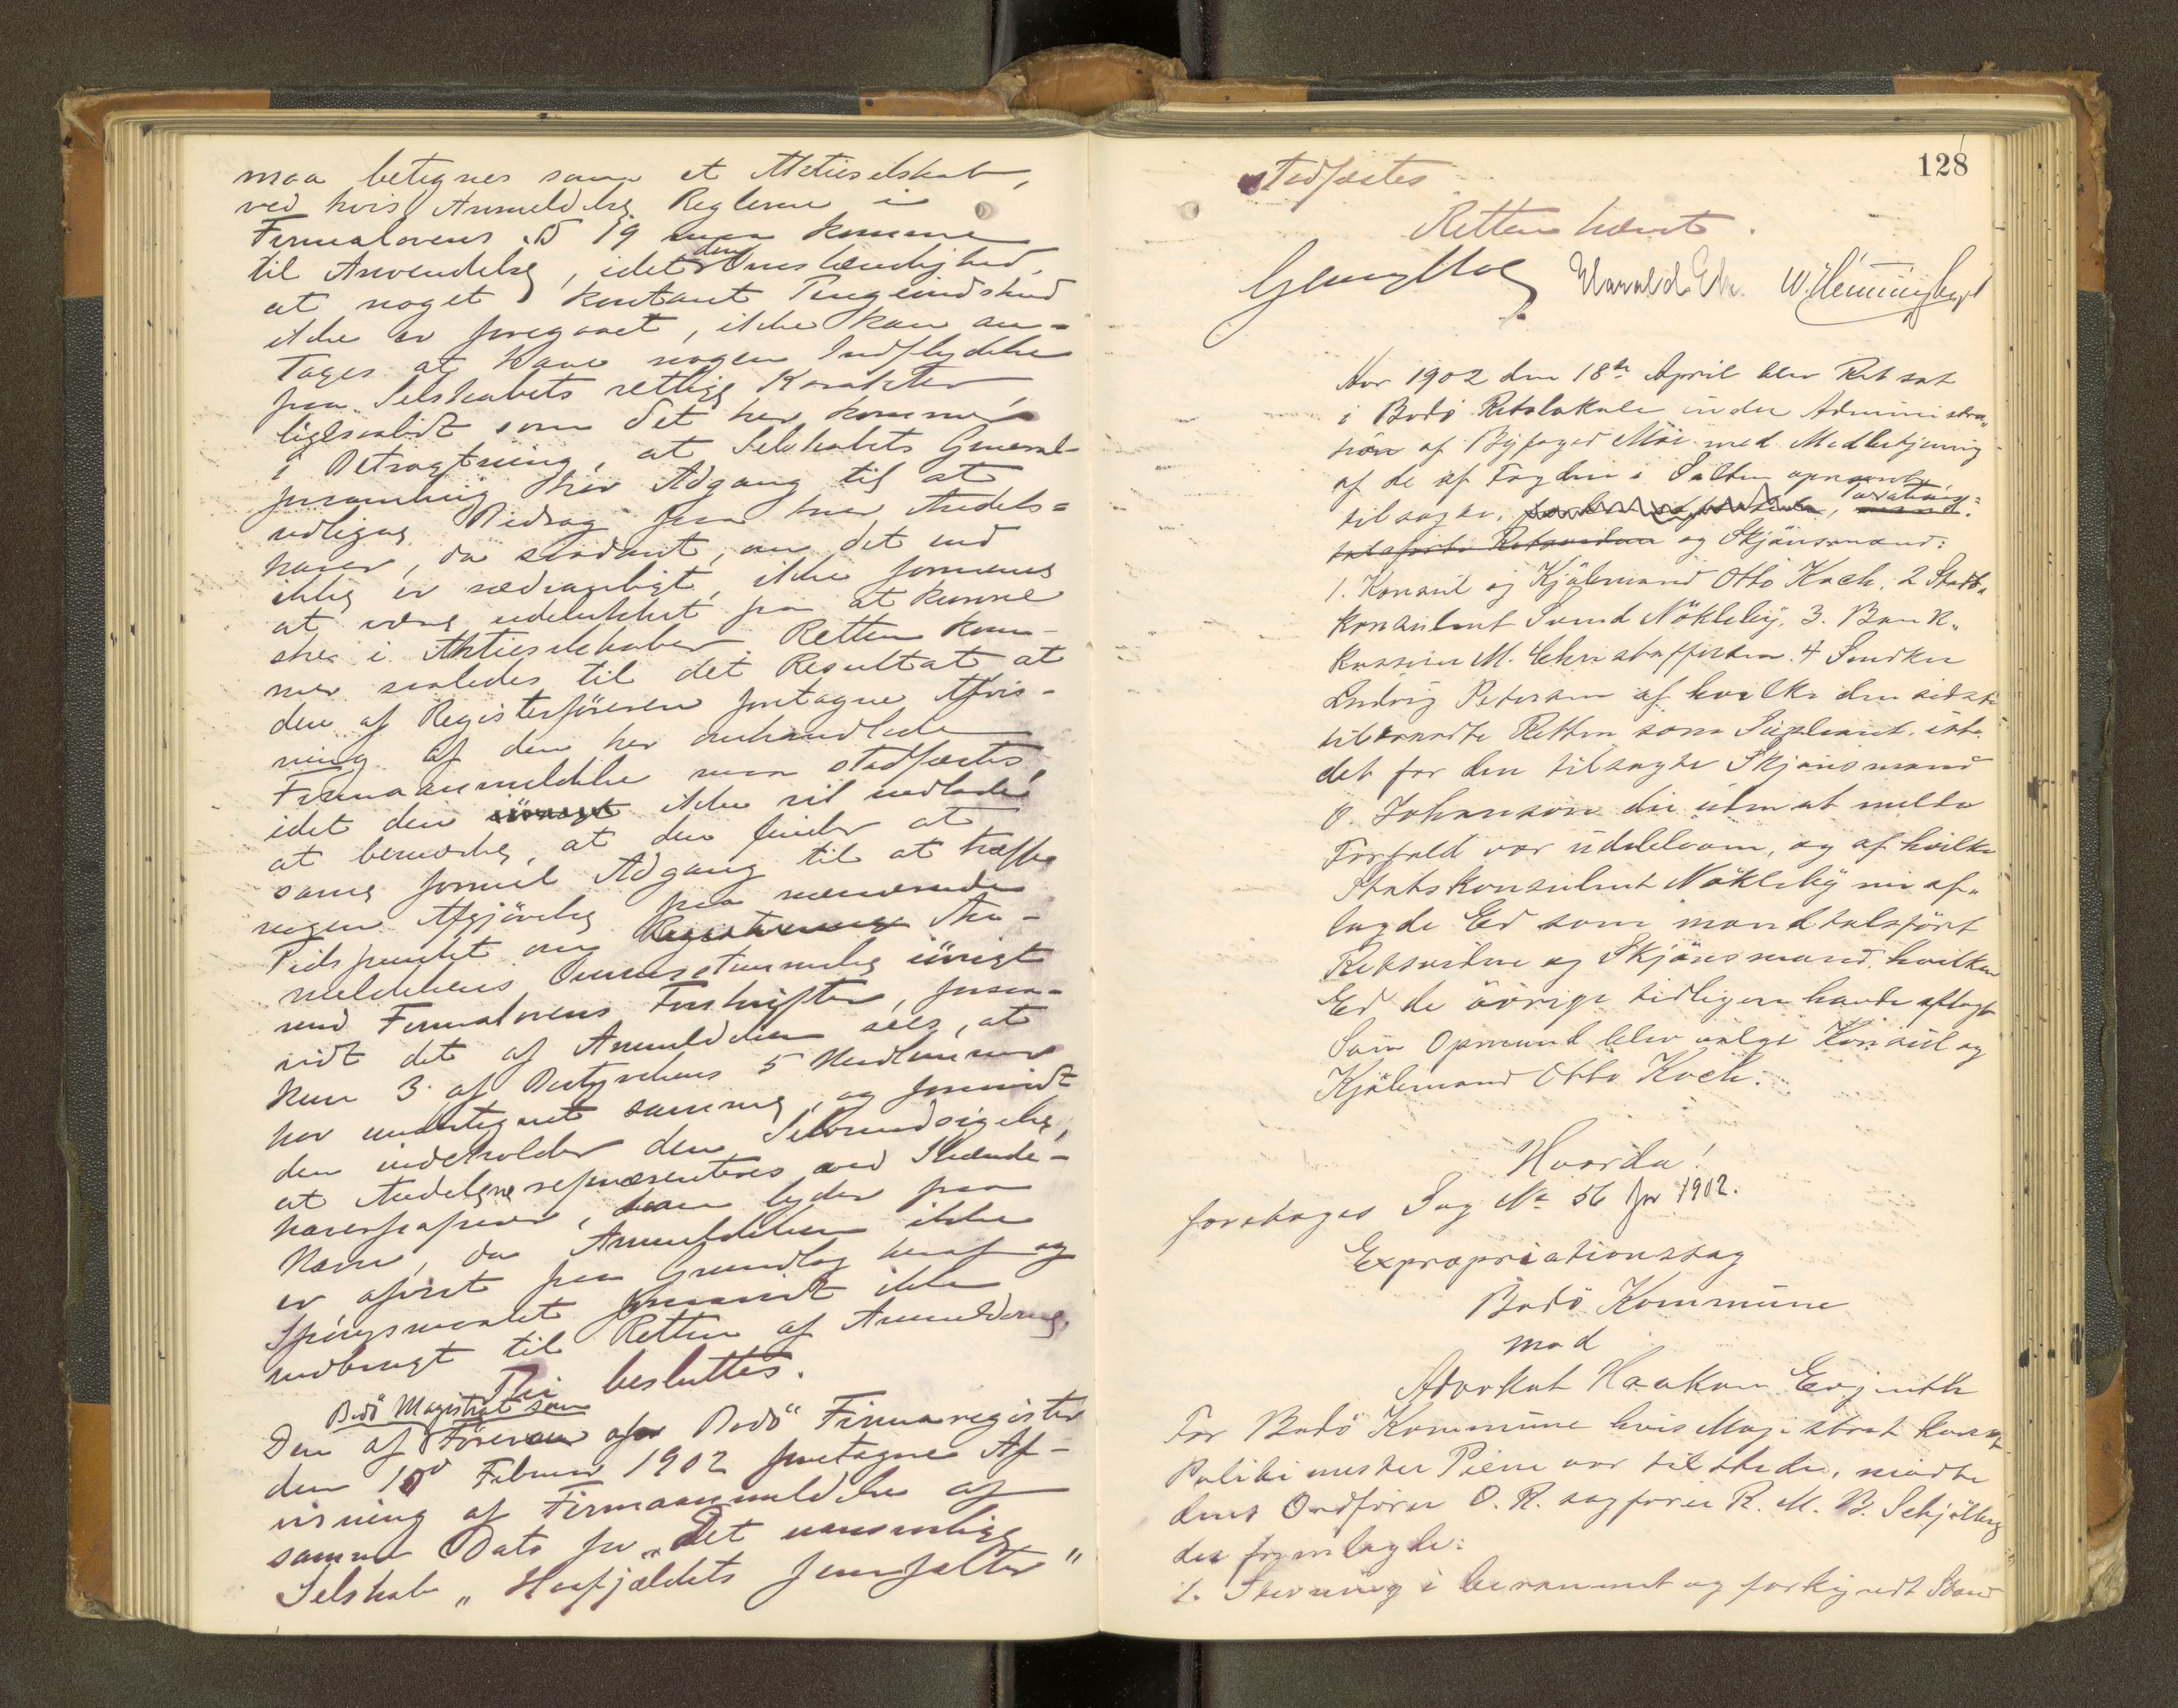 maa betegnes som et Aktieselskab,
ved hvis Anmeldelse Reglerne i
Firmalovens § 19 maa komme
til Anvendelse, idet den Omstændighed,
at noget kontant Pengeindskud
ikke er foregaaet, ikke kan an-
tages at have nogen Indflydelse
paa Selskabets retlige Karakter,
ligesaalidt som det her kommer
i Betragtning, at Selskabets General-
forsamling har Adgang til at
udligne Bidrag paa hver Andels-
haver, da saadant, om det end
ikke er sædvanligt, ikke formenes
at være udelukket fra at kunne
ske i Aktieselskaber. Retten kom-
mer saaledes til det Resultat at
den af Registerføreren foretagne Afvis-
ning af den her omhandlede
Firmaanmeldelse maa stadfæstes,
idet den ikke vil undlade
at bemærke, at den finder at
savne formel Adgang til at træffe
nogen Afgjørelse paa nærværende
Tidspunkt om An-
meldelsens Overensstemmelse iövrigt
med Firmalovens Forskrifter, forsaa-
vidt det af Anmeldelsen sees, at
kun 3 af Bestyrelsens 5 Medlemmer
har undertegnet samme, og forsaavidt
den indeholder den Selvmodsigelse,
at Andelene repræsenteres ved Ihænde-
haverpapirer, som lyder paa
Navn, da Anmeldelsen ikke
er afvist paa Grundlag heraf og
Spörgsmaalet forsaavidt ikke
indbragt til Retten af Anmelderne.
Thi besluttes.
Bodö Magistrat som
Den af Förer af Bodö Firmaregister
den 10 Februar 1902 foretagne Af-
visning af Firmaanmeldelse af
samme Dato for "Det uansvarlige
Selskab "Haafjeldets Jernfelter"
128
stadfæstes.
Retten hævet.
Harald W. Henningsen
Aar 1902 den 18de April blev Ret sat
i Bodö Retslokale under Administra-
tion af Byfoged Moe med Medbetjening
af de af Fogden i Salten opnævnte
tilsagte, Taxations-
talsførte Retsvidner og Skjönsmænd:
1. Konsul og Kjöbmand Otto Koch. 2 Stats-
konsulent Svend Nökleby. 3. Bank-
kasserer M. Christoffersen. 4 Snedker
Ludvig Petersen af hvilke den sidste
tiltraadte Retten som Supleant iste-
det for den tilsagte Skjönsmand
O. Johanson der uden at melde
Forfald var udebleven, og af hvilke
Statskonsulent Nökleby nu af-
lagde Ed som mandtalsfört
Retsvidne og Skjönsmand, hvilken
Ed de övrige tidligere havde aflagt
Som Opmand blev valgt Konsul og
Kjöbmand Otto Koch.
Hvorda!
foretoges Sag No 56 for 1902.
Expropriationssag
Bodö Kommune
mod
Advokat Haakon Evjenth
For Bodö Kommune hvis Magistrat konst.
Politimester Piene var tilstede, mödte
dens Ordförer O. R. sagförer R. M. B. Schjölberg
der fremlagde:
1. Stevning i berammet og forkyndt Stand